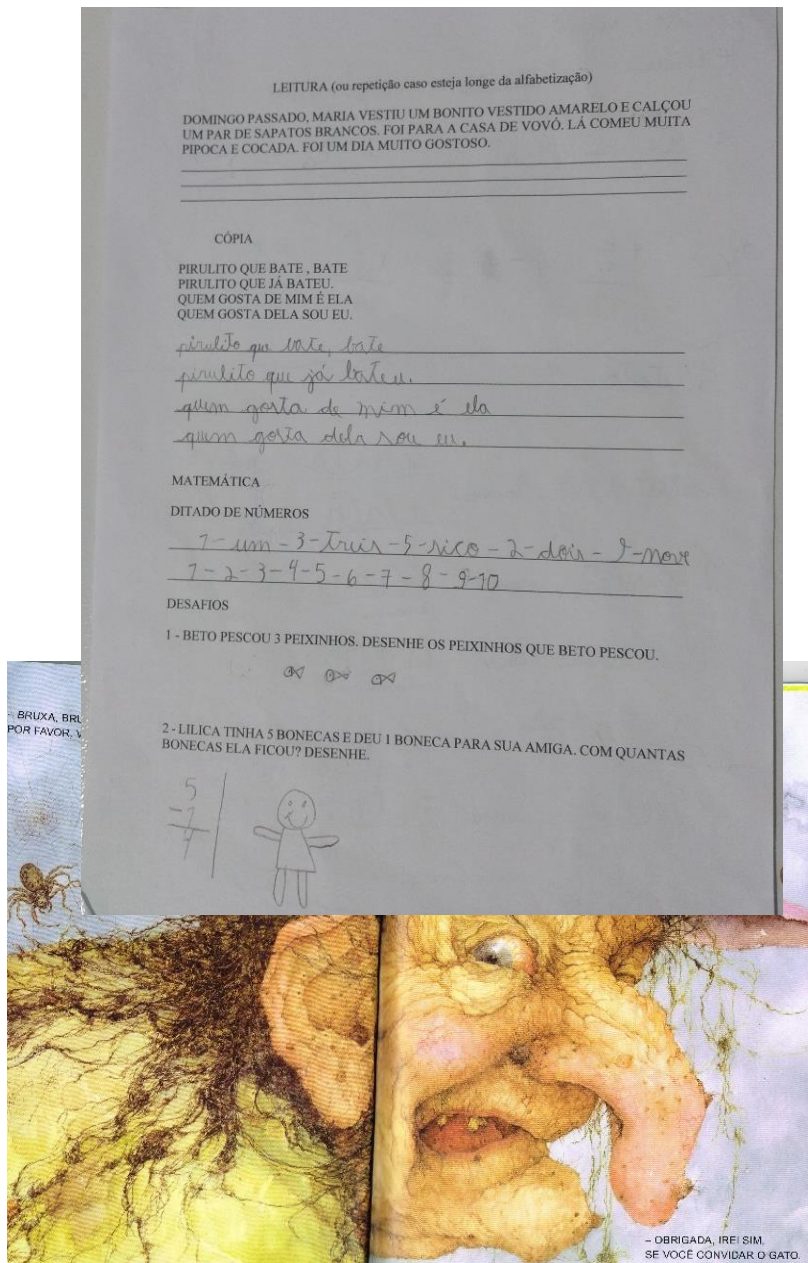 LEITURA (ou repetição caso esteja longe da alfabetização)
DOMINGO PASSADO, MARIA VESTIU UM BONITO VESTIDO AMARELO E CALÇOU
UM PAR DE SAPATOS BRANCOS. FOI PARA A CASA DE VOVÓ. LÁ COMEU MUITA
PIPOCA E COCADA. FOI UM DIA MUITO GOSTOSO.
CÓPIA
PIRULITO QUE BATE , BATE
PIRULITO QUE JÁ BATEU.
QUEM GOSTA DE MIM É ELA
QUEM GOSTA DELA SOU EU.
pirulito que bate, bate
pirulito que já bateu.
quem gosta de mim é ela
quem gosta dela sou eu.
MATEMÁTICA
DITADO DE NÚMEROS
1-um-3-treis-5-sico-2-dois-9-nove
1-2-3-4-5-6-7-8-9-10
DESAFIOS
1 - BETO PESCOU 3 PEIXINHOS. DESENHE OS PEIXINHOS QUE BETO PESCOU.
2 - LILICA TINHA 5 BONECAS E DEU 1 BONECA PARA SUA AMIGA. COM QUANTAS
BONECAS ELA FICOU? DESENHE.
5
-1
4
- BRUXA, BRU
POR FAVOR, V
– OBRIGADA, IREI SIM,
SE VOCÊ CONVIDAR O GATO.